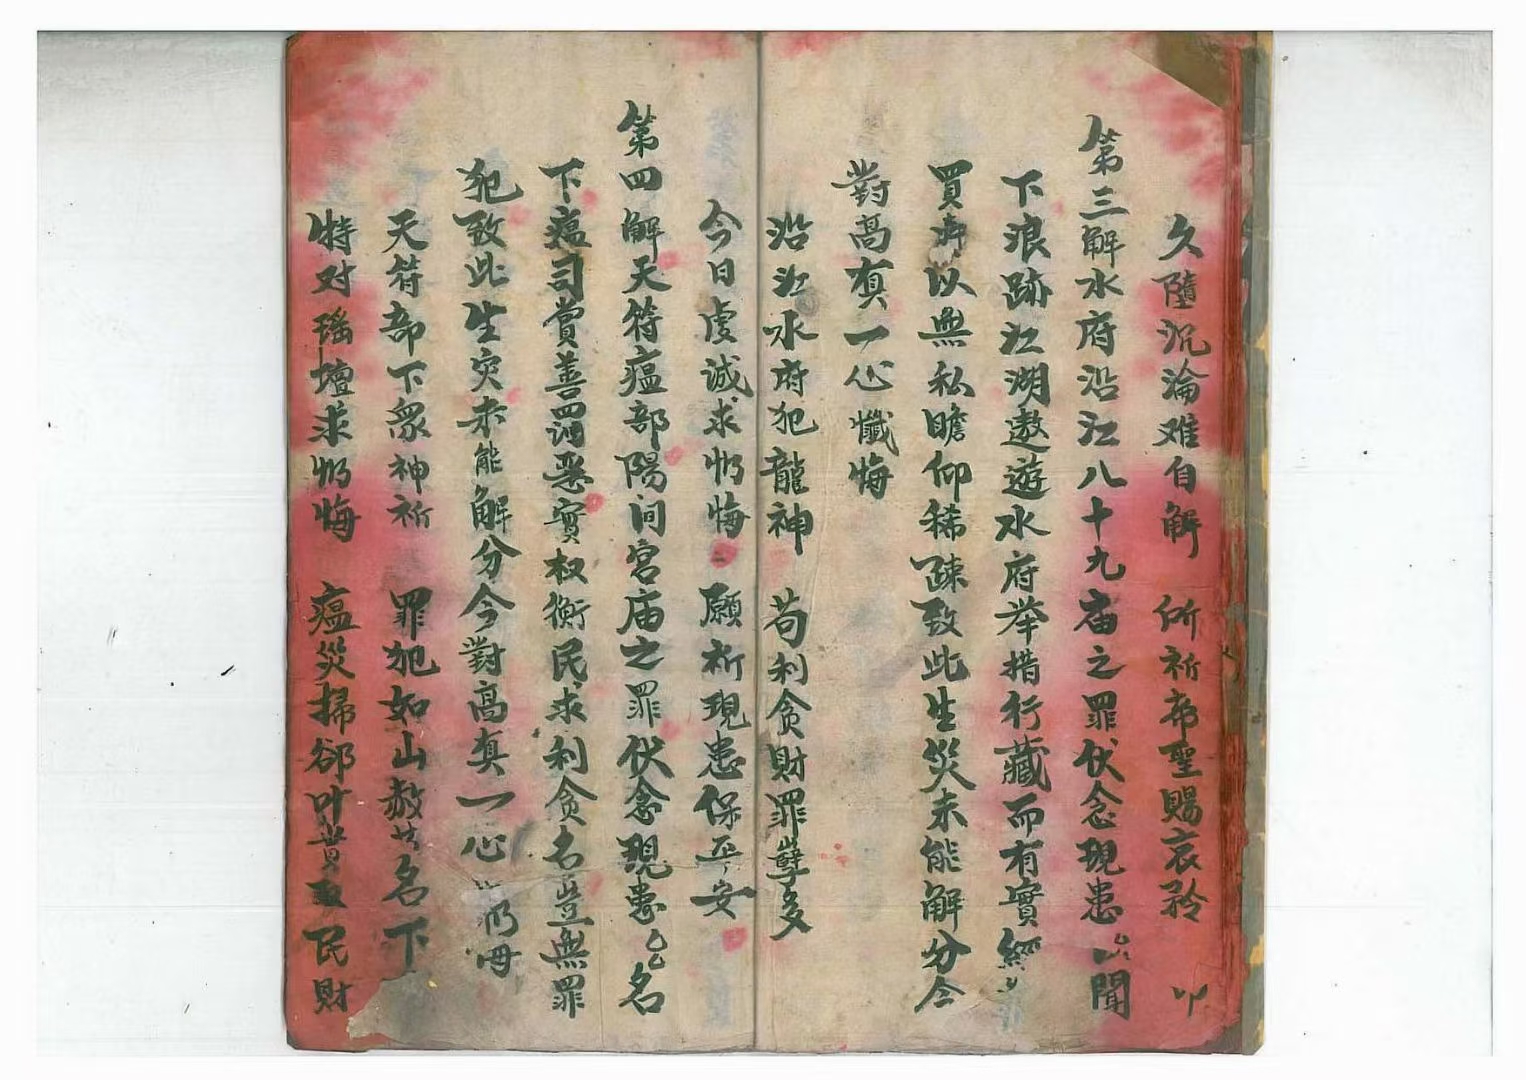 久墮沉淪难自解 所祈帝聖賜哀矜
第三解水府沿江八十九庙之罪伏念現患厶聞
下浪跡江湖遨遊水府举措行藏而有實經
買以無私瞻仰稀疎致此生災未能解分今
對高真一心懺悔
沿江水府犯龍神 苟利貪財罪孽多
今日虔誠求忏悔 願祈現患保平安
第四解天符瘟部陽间宮庙之罪伏念現患厶名
下瘟司賞善罰惡實权衡民求利貪名豈無罪
犯致此生灾未能解分今對高真一心
天符部下衆神祈 罪犯如山赦名下
特对瑶壇求忏悔 瘟災掃部叶民財